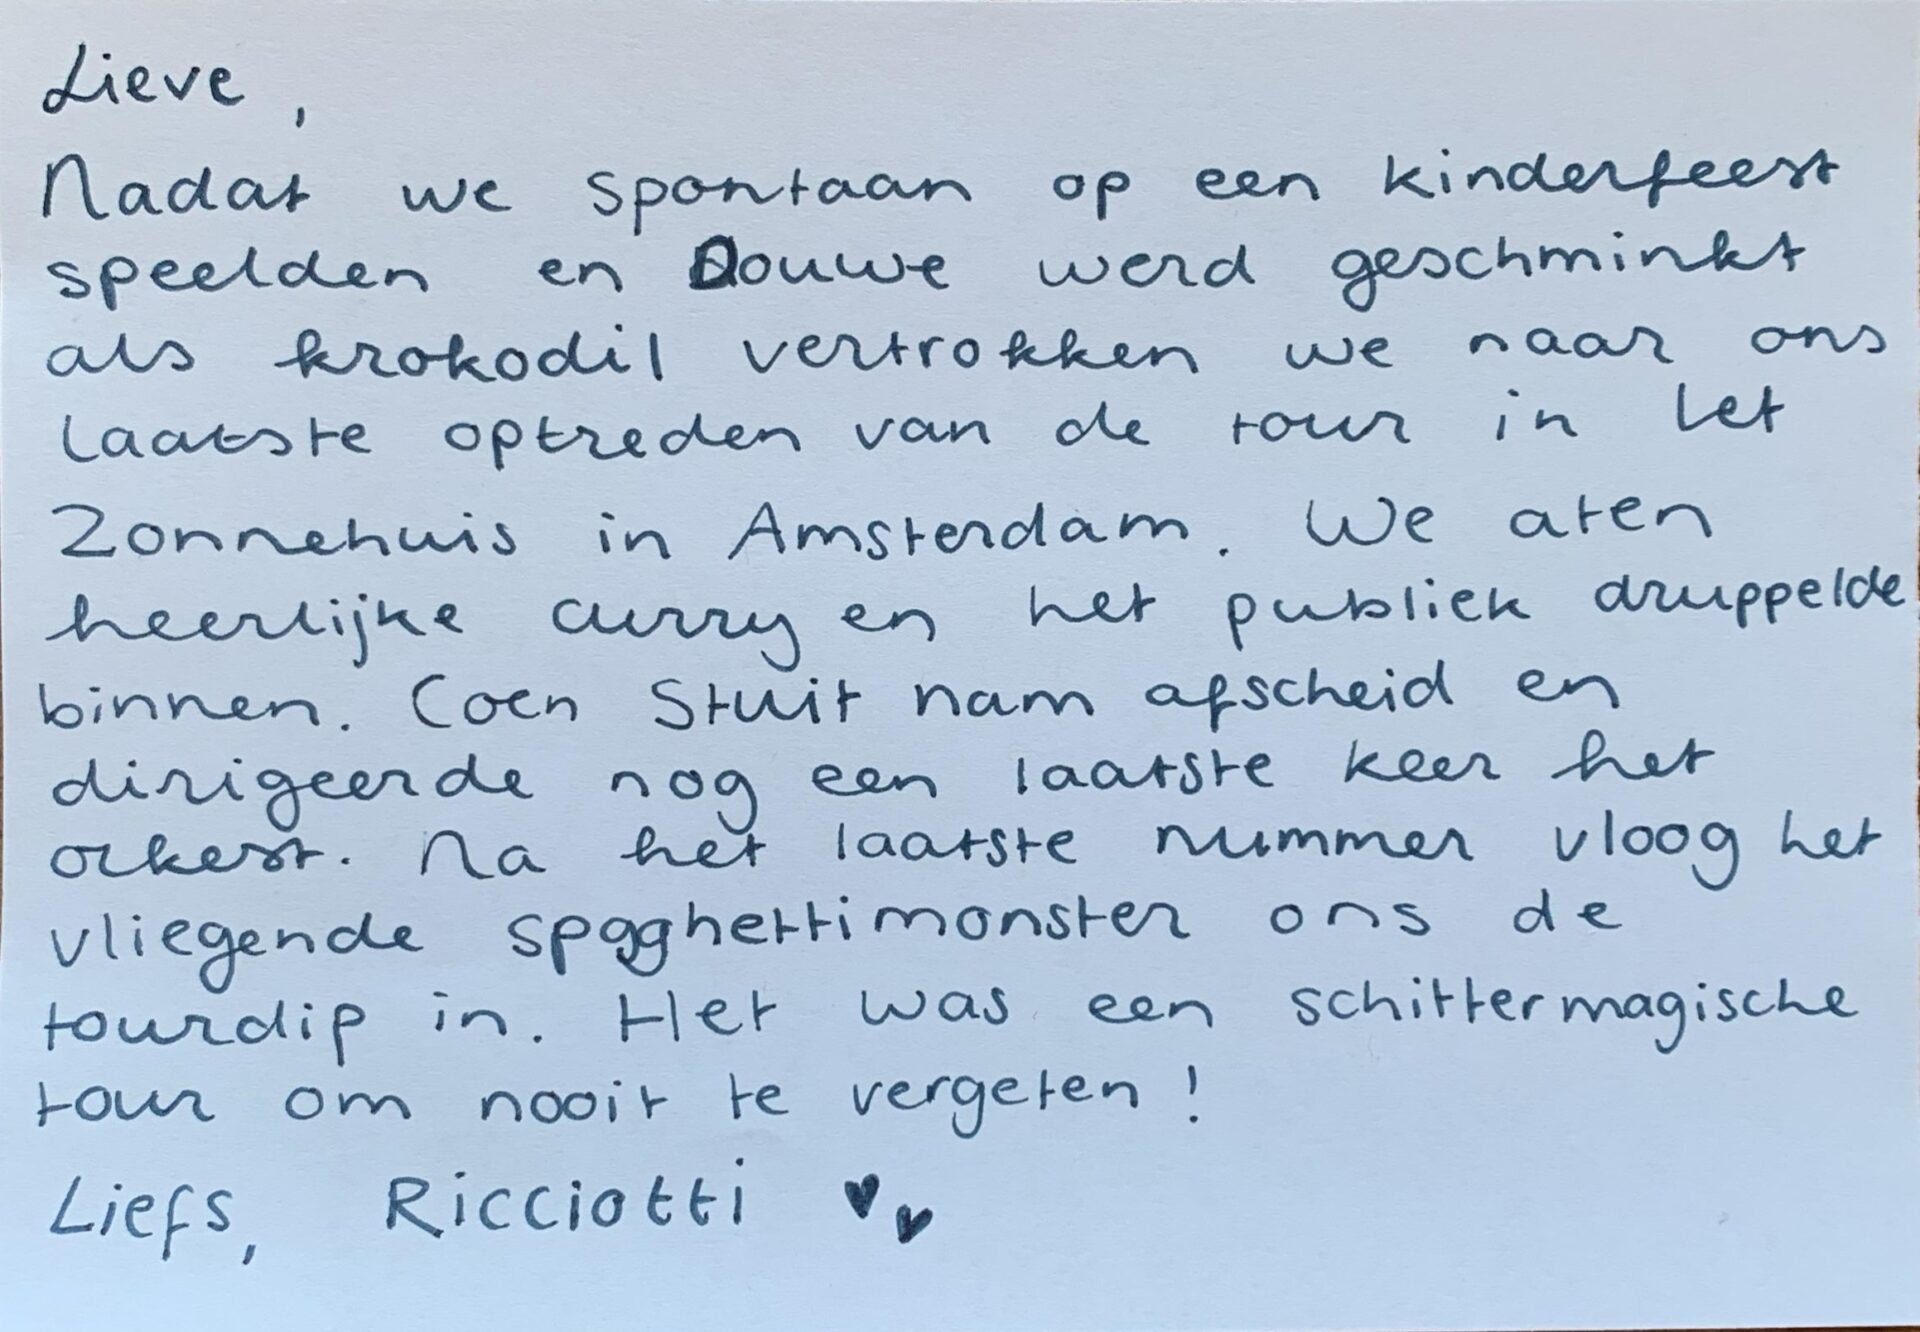 Lieve ,
Nadat we spontaan op een kinderfeest
speelden en Douwe werd geschminkt
als krokodil vertrokken we naar ons
laatste optreden van de tour in het
Zonnehuis in Amsterdam. We aten
heerlijke curry en het publiek druppelde
binnen. Coen Stuit nam afscheid en
dirigeerde nog een laatste keer het
orkest. Na het laatste nummer vloog het
vliegende spagghettimonster ons de
tourdip in. Het was een schittermagische
tour om nooit te vergeten !
Liefs, Ricciotti ♥♥